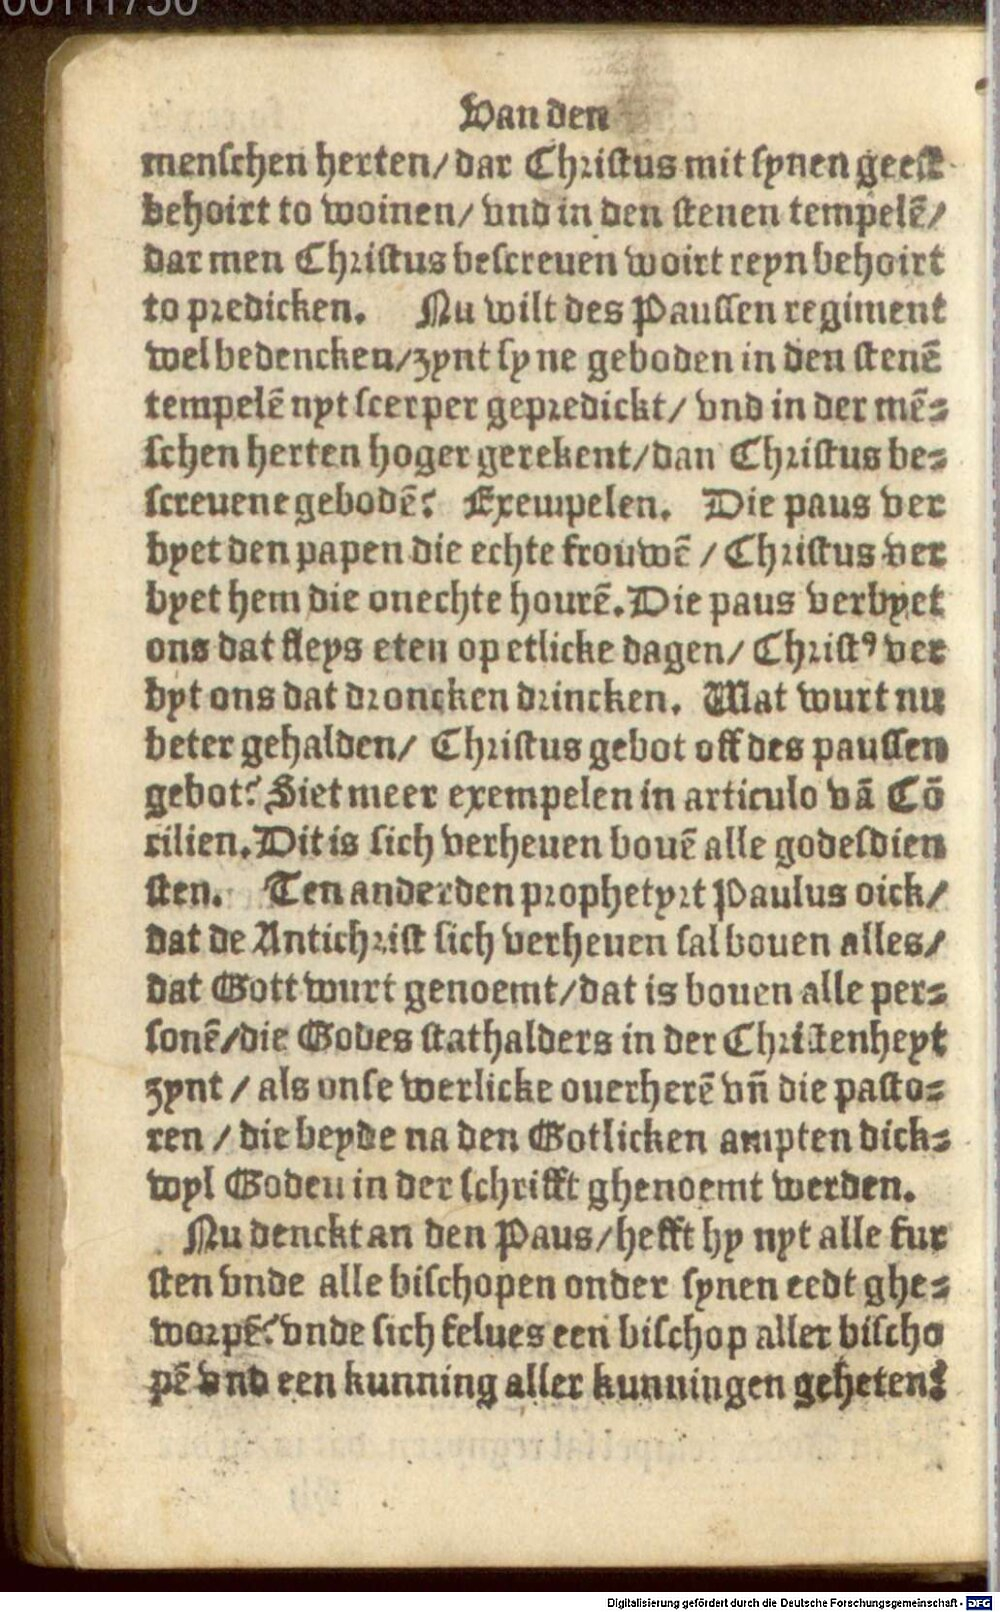 00111750
Van den
menschen herten/ dar Christus mit synen geest
behoirt to woinen/ vnd in den stenen tempelē/
dar men Christus bescreuen woirt reyn behoirt
to predicken. Nu wilt des Paussen regiment
wel bedencken/ zynt syne geboden in den stenē
tempelē nyt scerper gepredickt/ vnd in der mē⸗
schen herten hoger gerekent/ dan Christus be⸗
screuene gebodē? Exempelen. Die paus ver
byet den papen die echte frouwē / Christus ver
byet hem die onechte hourē. Die paus verbyet
ons dat fleys eten op etlicke dagen/ Christꝰ ver
byt ons dat droncken drincken. Wat wurt nu
beter gehalden/ Christus gebot off des paussen
gebot? Siet meer exempelen in articulo vā Cō
cilien. Dit is sich verheuen bouē alle godesdien
sten. Ten anderden prophetyrt Paulus oick/
dat de Antichrist sich verheuen sal bouen alles/
dat Gott wurt genoemt/ dat is bouen alle per⸗
sonē/ die Godes stathalders in der Christenheyt
zynt / als onse werlicke ouerherē vn̄ die pasto⸗
ren / die beyde na den Gotlicken ampten dick⸗
wyl Goden in der schrifft ghenoemt werden.
Nu denckt an den Paus/ hefft hy nyt alle fur
sten vnde alle bischopen onder synen eedt ghe⸗
worpē? vnde sich selues een bischop aller bischo
pē vnd een kunning aller kunningen geheten?
Digitalisierung gefördert durch die Deutsche Forschungsgemeinschaft - DFG